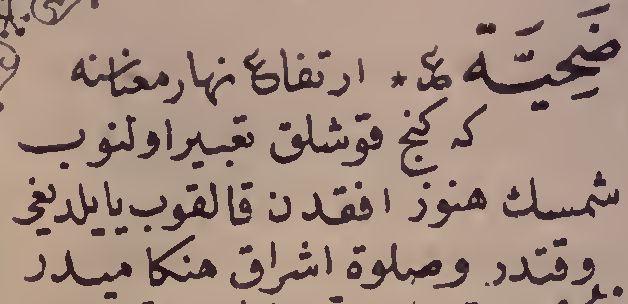 ضَحِيَّة ع * ارتفاع نهار معناسنه
كه كنج قوشلق تعبير اولنوب
شمسك هنوز افقدن قالقوب يايلديغى
وقتدر وصلوة اشراق هنكاميدر